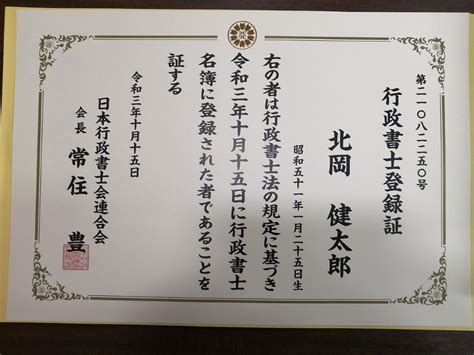 第二一〇八二二五〇号
行政書士登録証
北岡 健太郎
昭和五十一年一月二十五日生
右の者は行政書士法の規定に基づき
令和三年十月十五日に行政書士
名簿に登録された者であることを
証する
令和三年十月十五日
日本行政書士会連合会
会長 常住 豊